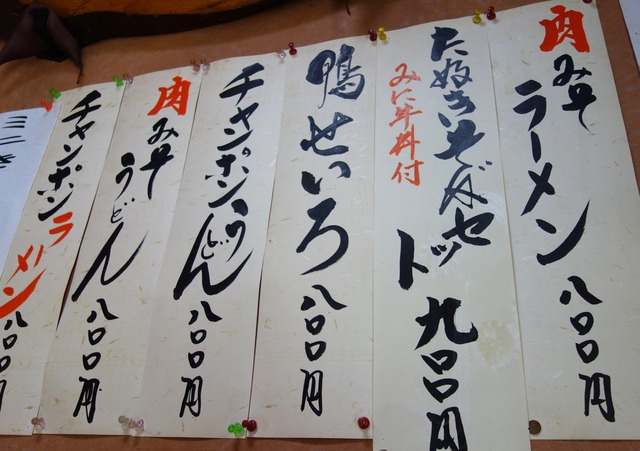 肉みそラーメン 八〇〇円
たぬきそばセット 九〇〇円
みに牛料付
鴨せいろ 八〇〇円
チャンポンうどん 八〇〇円
肉みそうどん 八〇〇円
チャンポンラーメン 八〇〇円